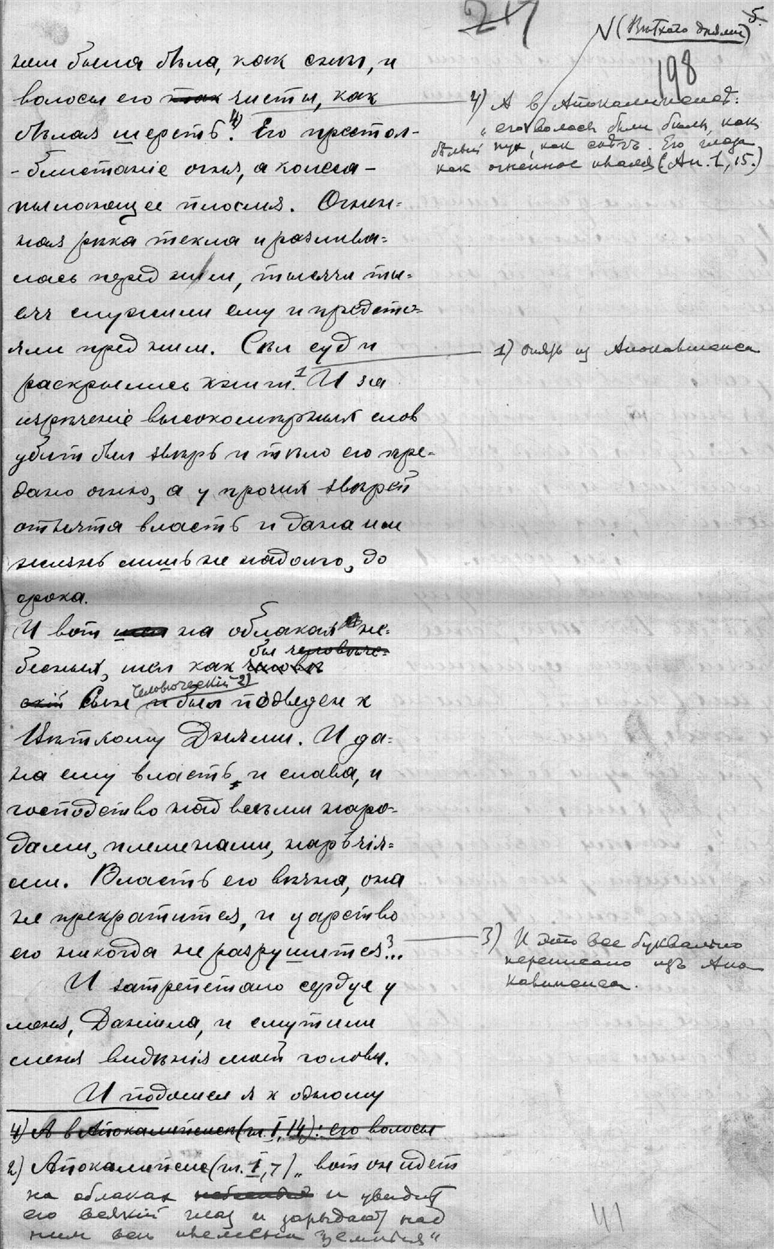 217
N (Ветхого днями)
5.
198
нем была бѣла, как снег, и
волосы его так чисты, как
бѣлая шерсть.4) Его престол-
- блистаніе огня, а колеса -
пылающее пламя. Огнен-
ная рѣка текла и разлива-
лась перед ним, тысячи ты-
сяч служили ему и предсто-
яли пред ним. Сѣл суд и
раскрылись книги.1 И за
изрѣченіе высокомѣрных слов
убит был звѣрь и тѣло его пре-
дано огню, а у прочих звѣрей
отнята власть и дана им
жизнь лишь не надолго, до
срока.
И вот на облаках не-
бесных, шел как был человѣче-
скій Сын человѣческій 2) и был подведен к
Ветхому Днями. И да-
на ему власть, и слава, и
господство над всѣми наро-
дами, племенами, нарѣчія-
ми. Власть его вѣчна, она
не прекратится, и царство
его никогда не разрушится3...
И затрепетало сердце у
меня, Даніила, и смутили
меня видѣнія моей головы.
И подошел я к одному
4) А в Апокалипсисе (гл. I, 14): его волосы
2) Апокалипсис (гл. I, 7) „вот он идет
на облаках и увидит
его всякій глаз и зарыдают над
ним все племена земныя“
4) А в Апокалипсисе:
„его волосы были бѣлы, как
бѣлый пух, как снѣгъ. Его глаза
как огненное пламя (Ап. 1, 15.)
1) опять из Апокалипсиса
3) И это все буквально
переписано изъ Апо
калипсиса.
41